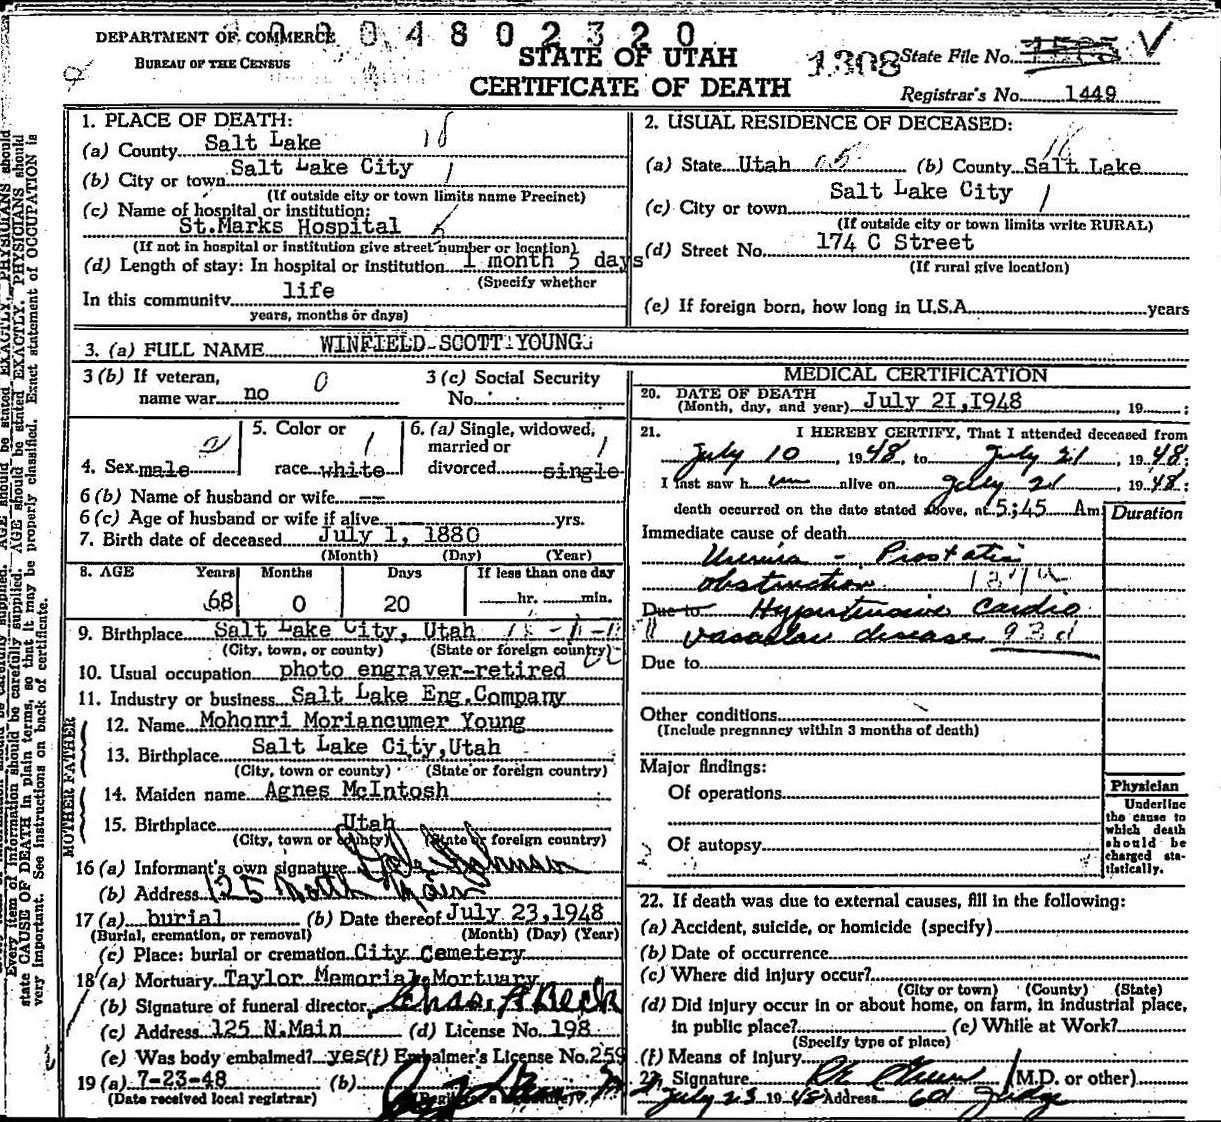 0 0 0 4 8 0 2 3 2 0
DEPARTMENT OF COMMERCE
BUREAU OF THE CENSUS
STATE OF UTAH
CERTIFICATE OF DEATH
1308 State File No.
Registrar's No. 1449
1. PLACE OF DEATH:
(a) County Salt Lake 18
(b) City or town Salt Lake City 1
(If outside city or town limits name Precinct)
(c) Name of hospital or institution:
St.Marks Hospital
(If not in hospital or institution give street number or location)
(d) Length of stay: In hospital or institution 1 month 5 days
(Specify whether
In this community life
years, months or days)
2. USUAL RESIDENCE OF DECEASED:
(a) State Utah 05 (b) County Salt Lake 18
Salt Lake City 1
(c) City or town
(If outside city or town limits write RURAL)
(d) Street No. 174 C Street
(If rural give location)
(e) If foreign born, how long in U.S.A. years
3. (a) FULL NAME WINFIELD SCOTT YOUNG
3 (b) If veteran, name war no 0
3 (c) Social Security No.
4. Sex male
5. Color or race white 1
6. (a) Single, widowed, married or divorced single 1
6 (b) Name of husband or wife --
6 (c) Age of husband or wife if alive -- yrs.
7. Birth date of deceased July 1, 1880
(Month) (Day) (Year)
8. AGE Years Months Days If less than one day
68 0 20 hr. min.
9. Birthplace Salt Lake City, Utah
(City, town, or county) (State or foreign country)
10. Usual occupation photo engraver-retired
11. Industry or business Salt Lake Eng.Company
FATHER
12. Name Mohonri Moriancumer Young
13. Birthplace Salt Lake City,Utah
(City, town or county) (State or foreign country)
MOTHER
14. Maiden name Agnes McIntosh
15. Birthplace Utah
(City, town or county) (State or foreign country)
16 (a) Informant's own signature
(b) Address 125 North Main
17 (a) burial (b) Date thereof July 23,1948
(Burial, cremation, or removal) (Month) (Day) (Year)
(c) Place: burial or cremation City Cemetery
18 (a) Mortuary Taylor Memorial Mortuary
(b) Signature of funeral director, Chas. A Beck
(c) Address 125 N.Main (d) License No. 198
(e) Was body embalmed? yes (f) Embalmer's License No. 259
19 (a) 7-23-48 (b)
(Date received local registrar)
MEDICAL CERTIFICATION
20. DATE OF DEATH
(Month, day, and year) July 21,1948 , 19 ;
21. I HEREBY CERTIFY, That I attended deceased from
July 10, 1948, to July 21, 1948;
I last saw him alive on July 21, 1948;
death occurred on the date stated above, at 5:45 Am
Duration
Immediate cause of death
Uremia - Prostatic
obstruction 137a
Due to Hypertensive Cardio
vascular disease 93d
Due to
Other conditions
(Include pregnancy within 3 months of death)
Major findings:
Of operations
Of autopsy
Physician
Underline
the cause to
which death
should be
charged sta-
tistically.
22. If death was due to external causes, fill in the following:
(a) Accident, suicide, or homicide (specify)
(b) Date of occurrence
(c) Where did injury occur?
(City or town) (County) (State)
(d) Did injury occur in or about home, on farm, in industrial place,
in public place? (e) While at Work?
(Specify type of place)
(f) Means of injury
23. Signature (M.D. or other)
July 23 1948 Address
AGE should be stated EXACTLY. PHYSICIANS should
Every item of information should be carefully supplied. AGE should be stated EXACTLY. PHYSICIANS should
state CAUSE OF DEATH in plain terms, so that it may be properly classified. Exact statement of OCCUPATION is
very important. See instructions on back of certificate.